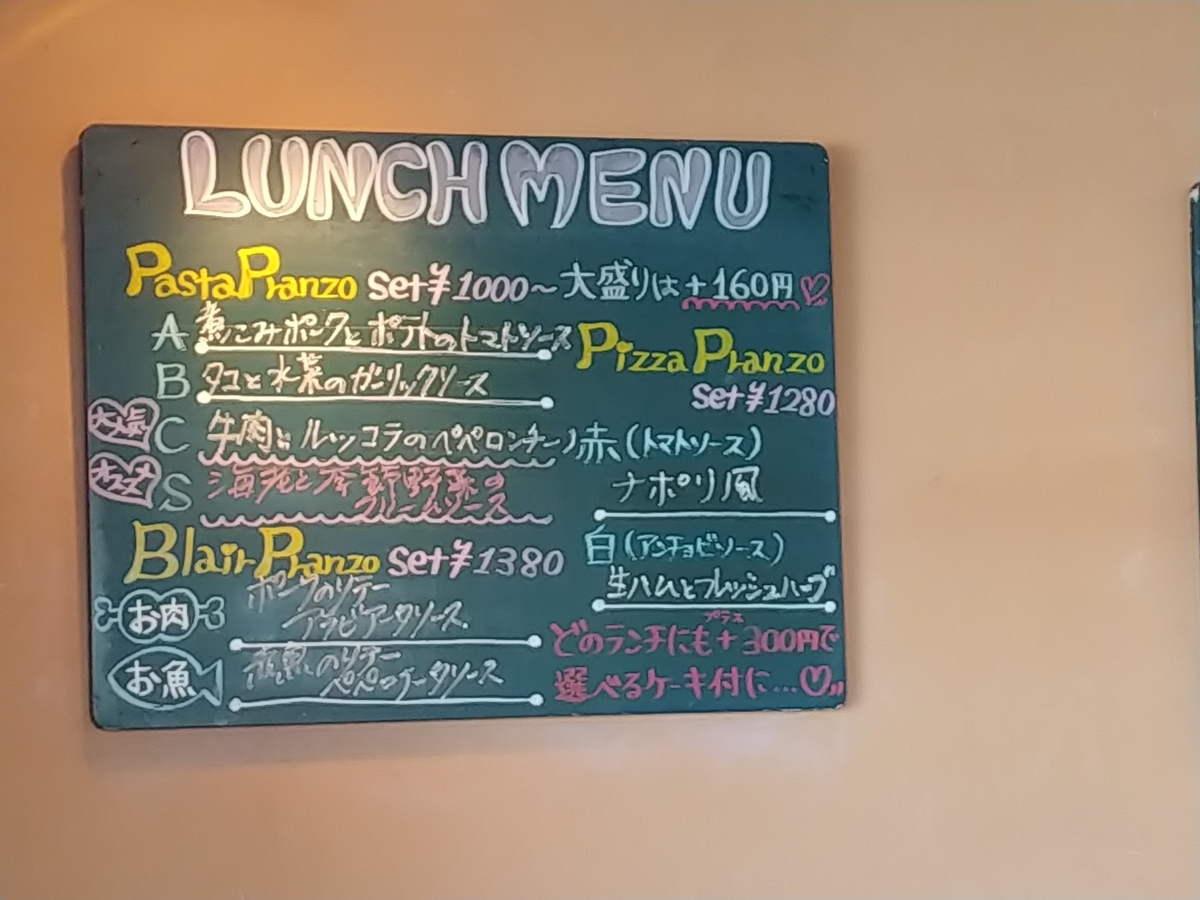 LUNCH MENU
Pasta Pranzo set ¥1000～ 大盛りは+160円♡
A 煮こみポークとポテトのトマトソース
B タコと水菜のガーリックソース
大人気 C 牛肉とルッコラのペペロンチーノ
オススメ S 海老と季節野菜の
クリームソース
Blair Pranzo set ¥1380
お肉 ポークのソテー
アラビアータソース
お魚 のソテー
ソース
Pizza Pranzo
set ¥1280
赤(トマトソース)
ナポリ風
白(アンチョビソース)
生ハムとフレッシュハーブ
プラス
どのランチにも+300円で
選べるケーキ付に…♡